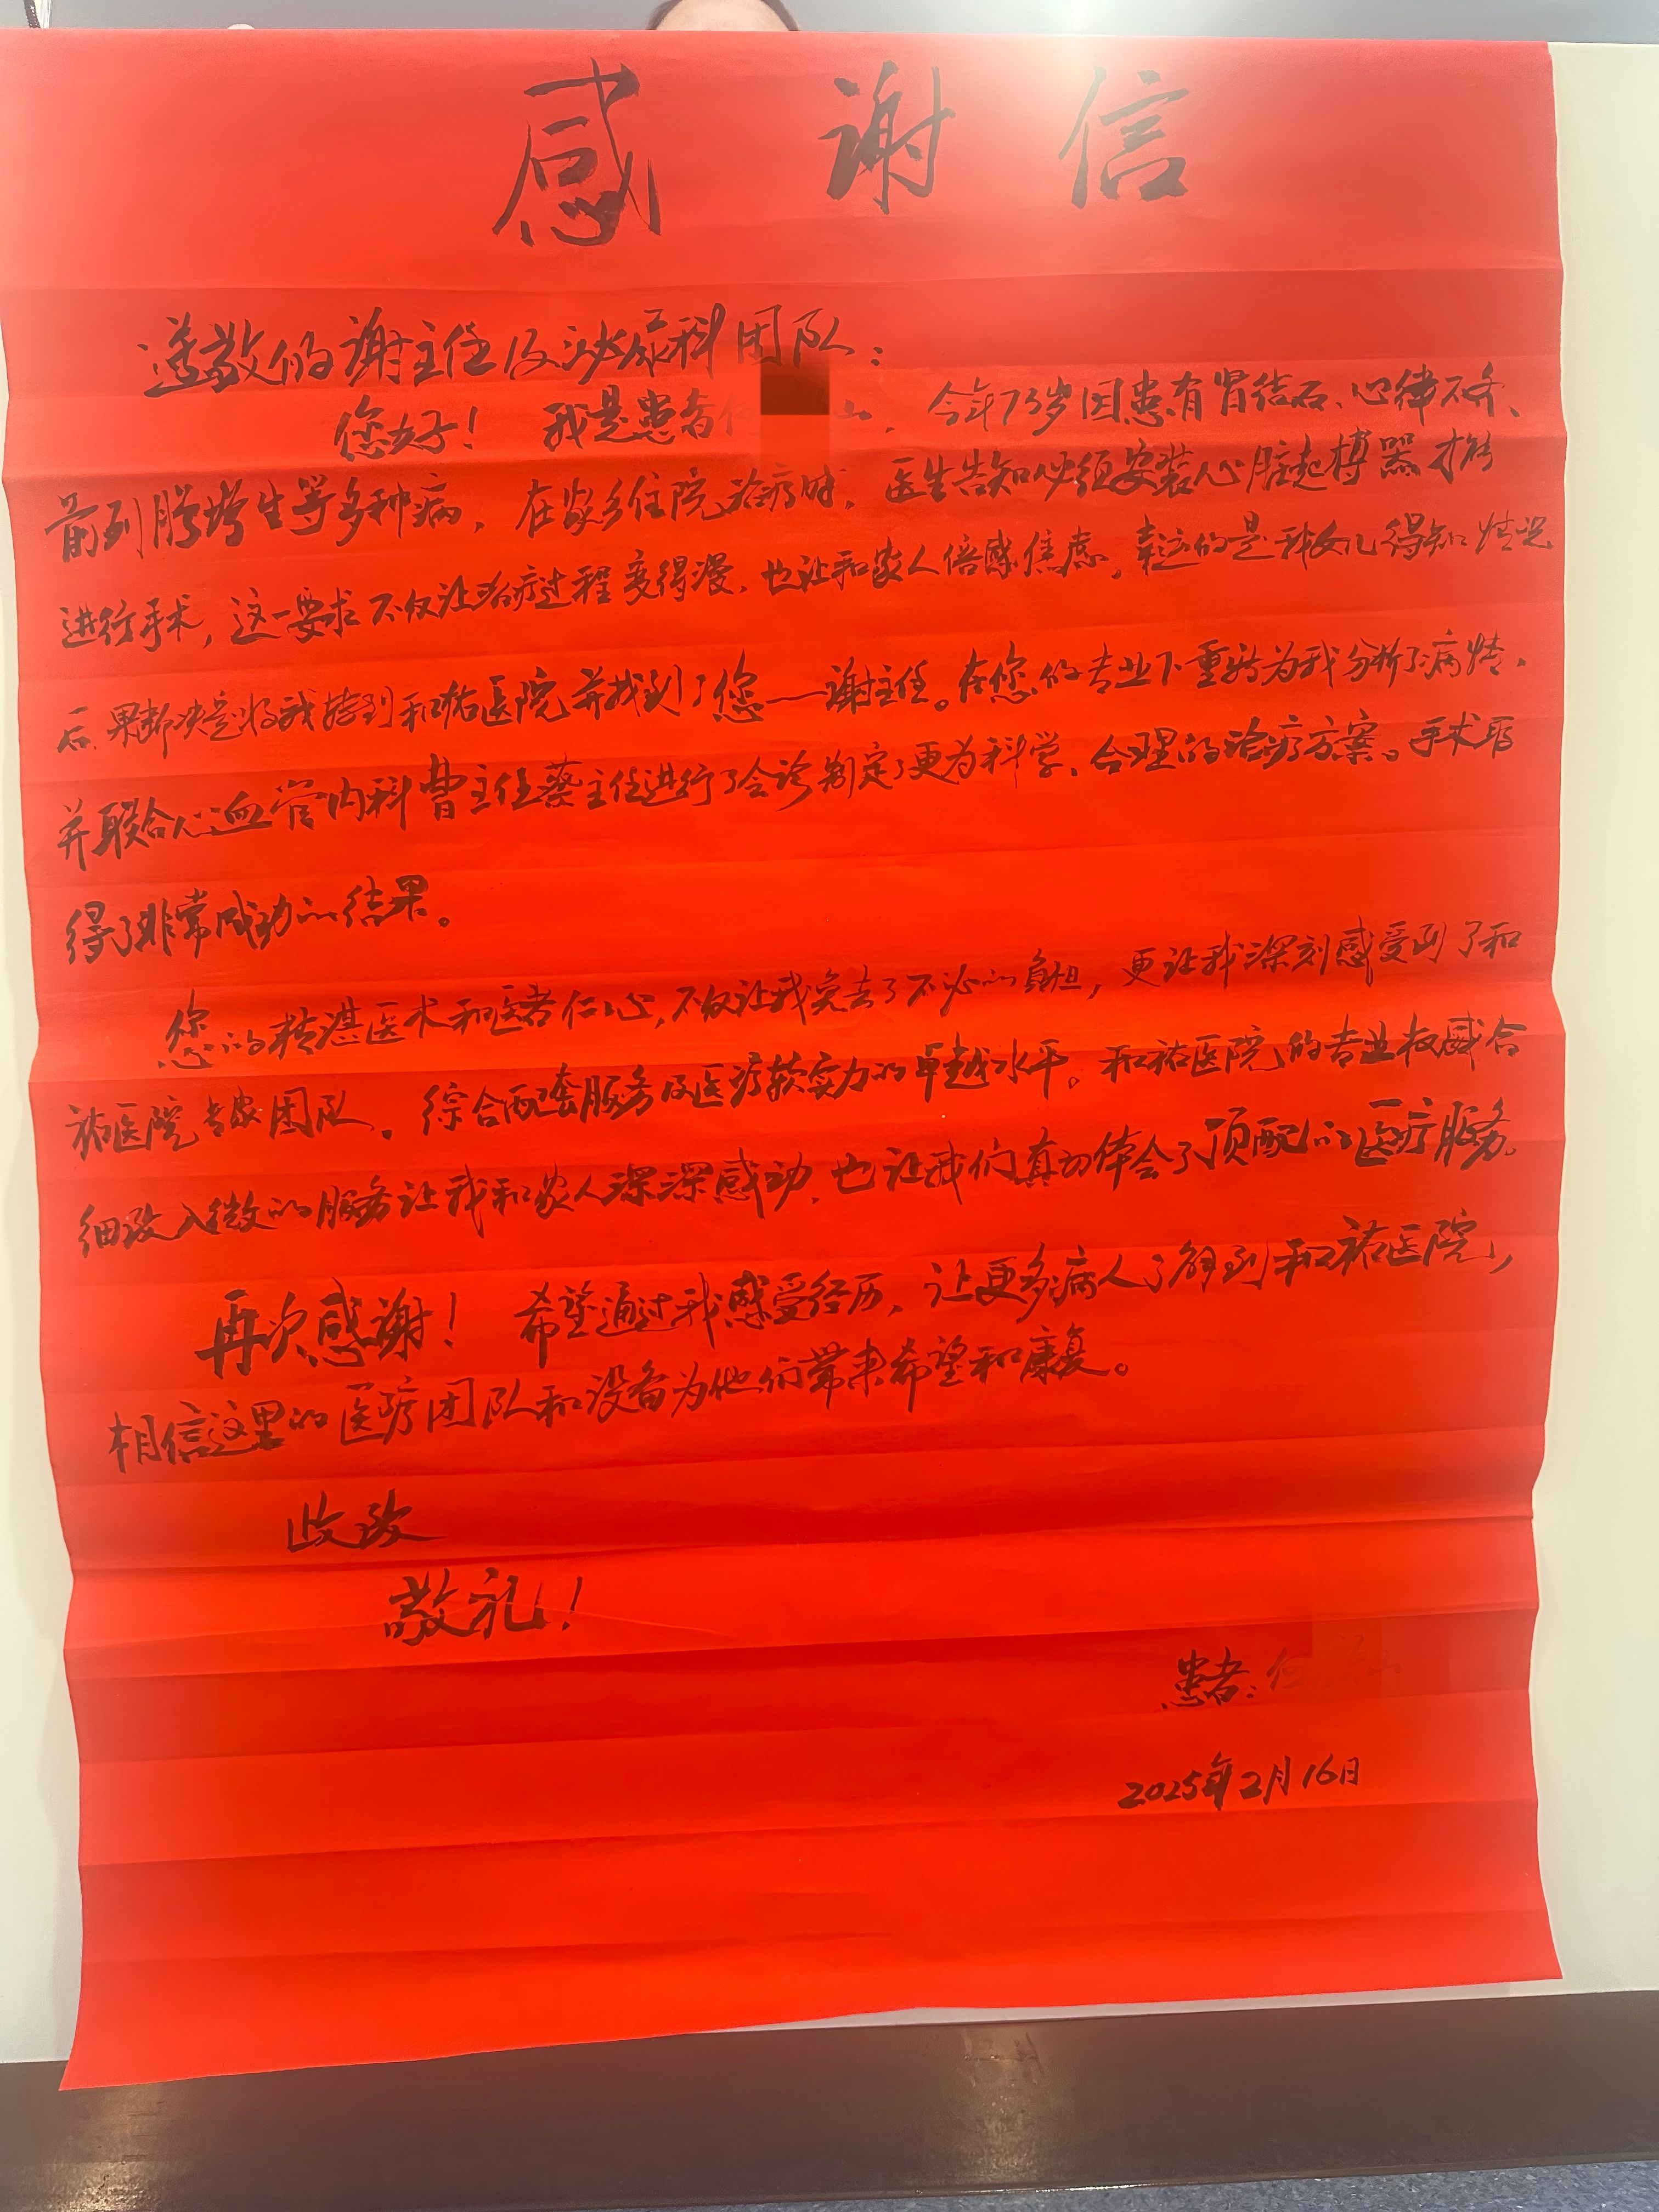 感谢信
尊敬的谢主任及泌尿科团队：
您好！我是患者 山，今年73岁因患有肾结石、心律不齐、
前列腺增生等多种病，在家乡住院治疗时，医生告知必须安装心脏起搏器才能
进行手术，这一要求不仅让治疗过程变得漫，也让和家人倍感焦虑，幸运的是我女儿得知情况
后，果断决定将我转到和祐医院并找到了您——谢主任。在您的专业下重新为我分析了病情，
并联合心血管内科曹主任蔡主任进行了会诊制定了更为科学、合理的治疗方案。手术取
得了非常成功的结果。
您的精湛医术和医者仁心，不仅让我免去了不必的负担，更让我深刻感受到了和
祐医院专家团队。综合配套服务及医疗软实力的卓越水平。和祐医院的专业权威合
细致入微的服务让我和家人深深感动，也让我们真切体会了顶配的医疗服务。
再次感谢！希望通过我感受经历，让更多病人了解到和祐医院，
相信这里的医疗团队和设备为他们带来希望和康复。
此致
敬礼！
患者：
2025年2月16日